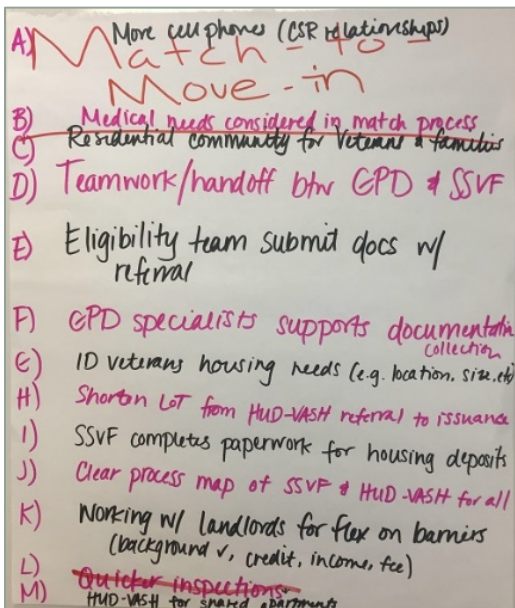 A) More cell phones (CSR relationships)
Match - to -
Move-in
B) Medical needs considered in match process
C) Residential community for Veterans & families
D) Teamwork/handoff btw GPD & SSVF
E) Eligibility team submit docs w/
referral
F) GPD specialists supports documentatin
collection
G) ID veterans housing needs (e.g. location, size, etc)
H) Shorten LOT from HUD-VASH referral to issuance
I) SSVF completes paperwork for housing deposits
J) Clear process map of SSVF & HUD-VASH for all
K) Working w/ landlords for flex on barriers
(background ✓, credit, income, fee)
L) Quicker inspections
M) HUD-VASH for shared apartments